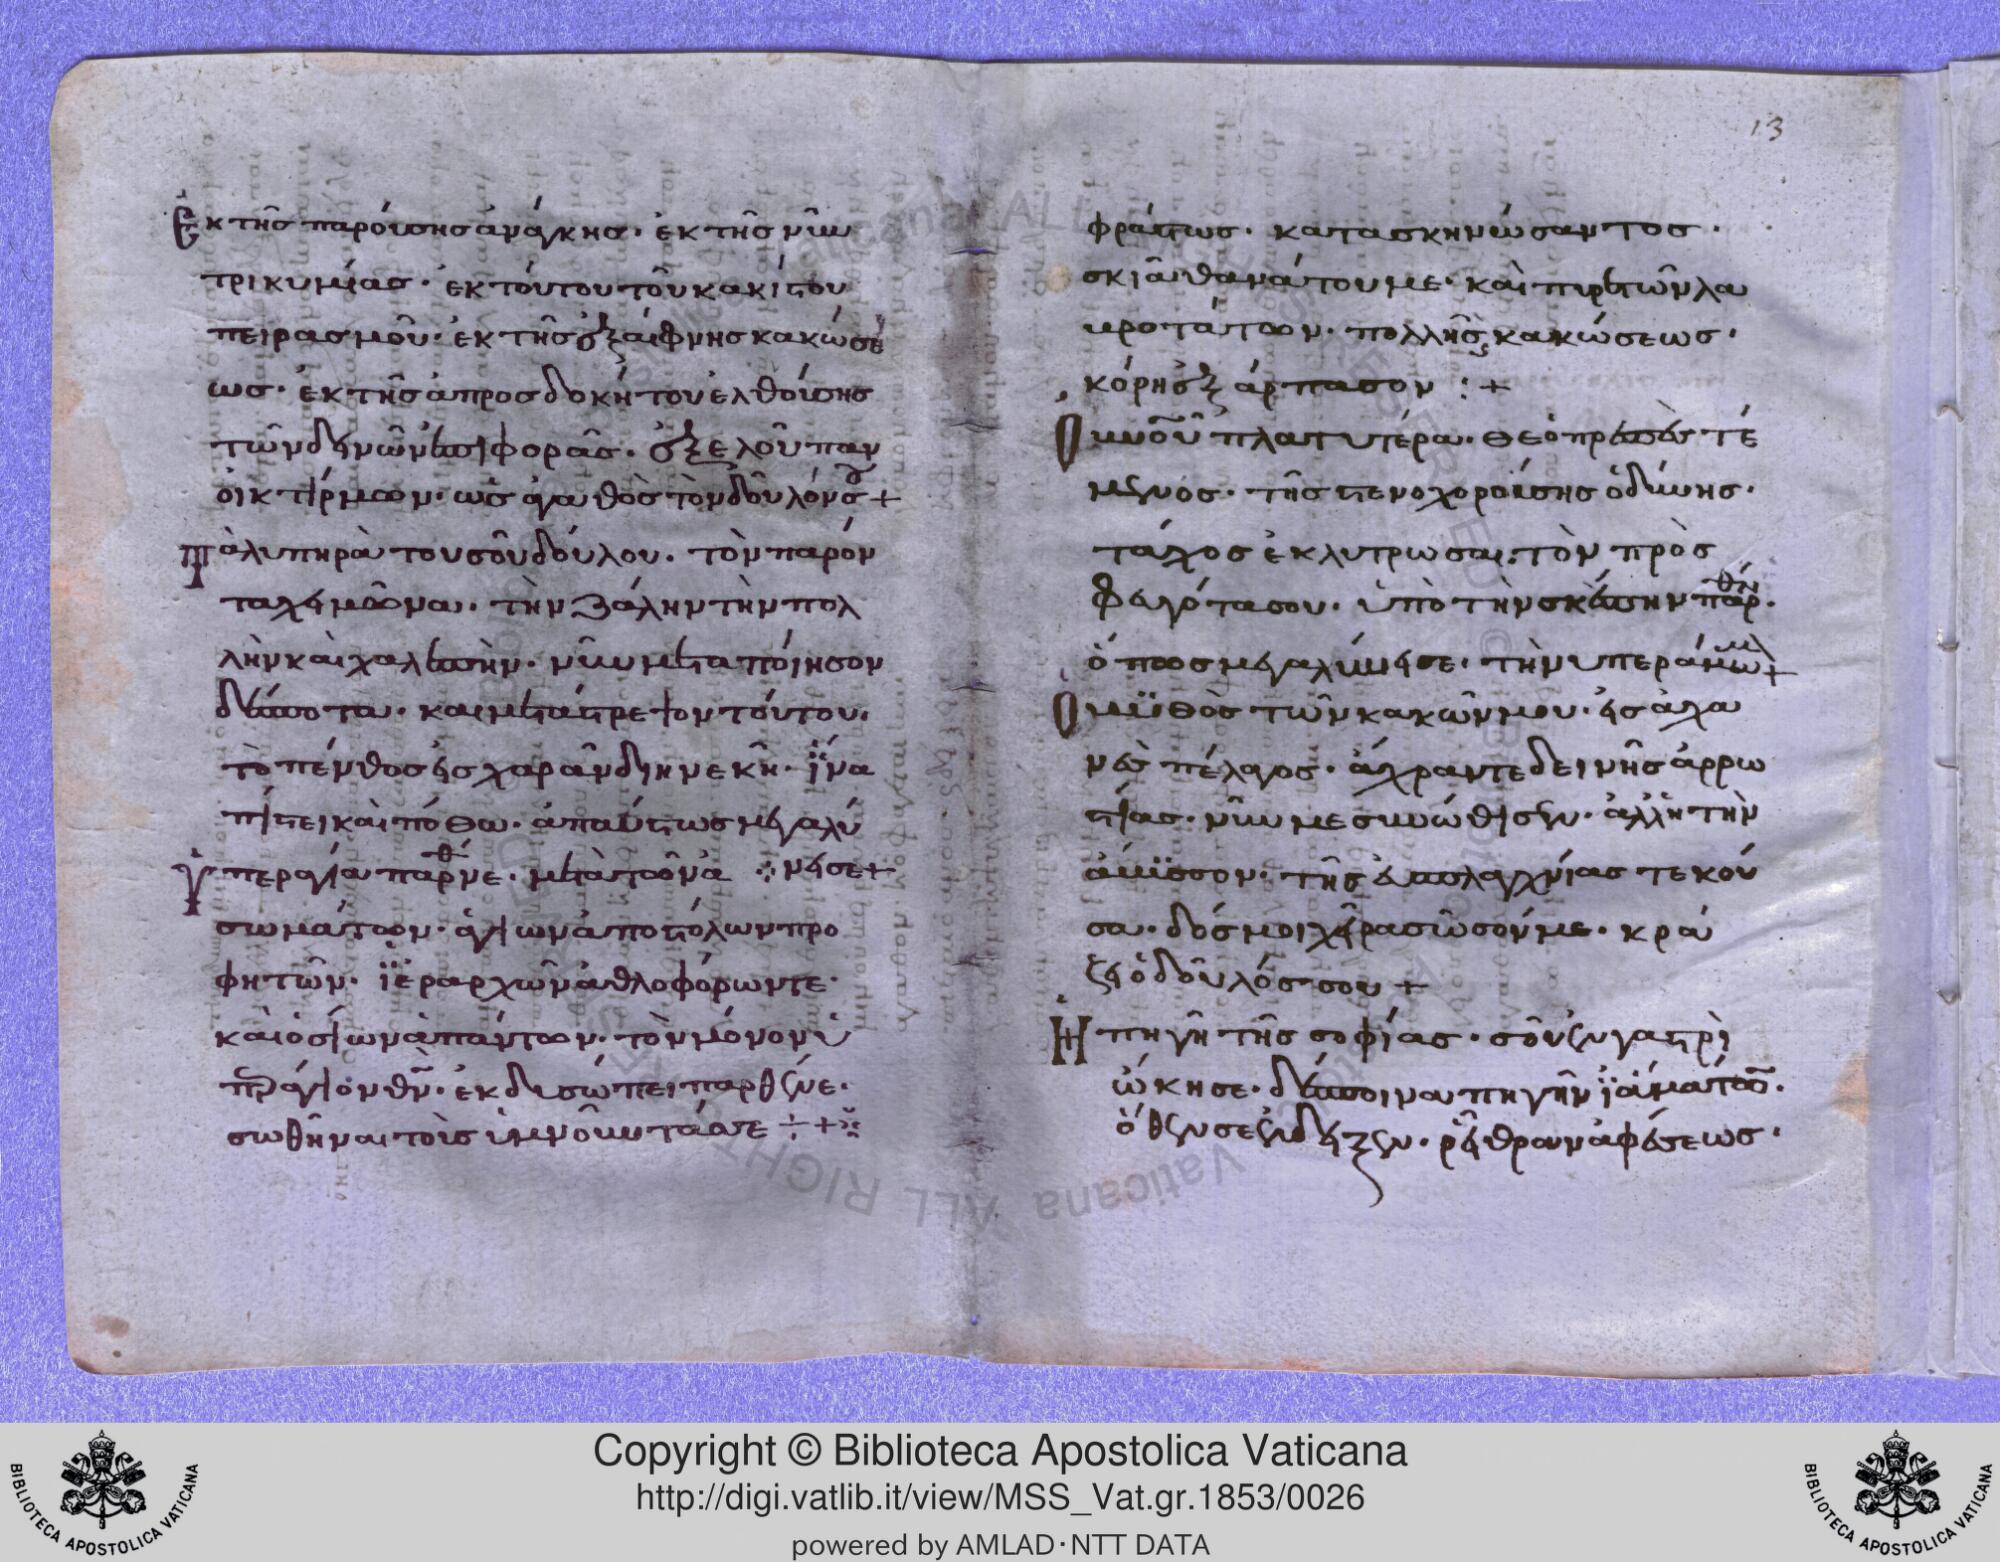 Ἐκ τῆς παρούσης ἀνάγκης· ἐκ τῆς νῦν
τρικυμίας· ἐκ τούτου τοῦ κακίστου
πειρασμοῦ· ἐκ τῆς ἐξαίφνης κακώσε
ως· ἐκ τῆς ἀπροσδοκήτου ἐλθούσης
τῶν δεινῶν ἐπιφορᾶς· ἐξελοῦ παν
οικτίρμων· ὡς ἀγαθὸς τὸν δοῦλόν σου +
Τὰ λυπηρὰ του σοῦ δούλου· τὸν παρόν
τα χειμῶνα· τὴν ζάλην τὴν πολ
λὴν καὶ χαλεπὴν· νῦν μεταποίησον
δέσποτα· και μετάστρεψον τούτου·
τὸ πένθος εἰς χαρᾶν διηνεκῆ· ἵνα
πίστει καὶ πόθω· ἀπαύστως μεγαλύ
Ὑπεραγία παρθνε· μετὰ τῶν ἀ νει σε +
σωμάτων· ἁγίων ἀποστόλων προ
φητῶν· ϊεραρχῶν ἀθλοφόρων τε·
καὶ ὁσίων ἁπάντων· τὸν μόνον ὑ
περάγιον θν· ἐκδυσώπει παρθένε·
σωθῆναι τοὺς ὑμνοῦντάς σε ÷ +
13
φράκτως· κατασκηνώσαντος·
σκιᾶ θανάτου με· καὶ πικρῶν λα
μροτάτων· πολλῆς κακώσεως·
κόρη ἐξάρπασον : +
Οὐνοῦ πλατυτέρα· Θεόπρεπὲς τέ
μενος· τῆς στενοχορούσης ὀδύνης·
τάχος ἐκλυτρωσαι· τὸν πρὸς
φειγότα σου· ὑπὸ τὴν σκέπην παρθέν·
ὅπως μεγαλύνει σε· τὴν υπεράμωμ +
Ὁ μϋθὸς τῶν κακῶν μου· εἰς ἀχα
νὲς πέλαγος· ἄχραντε δεινῆς ἀρρω
στίας· νῦν με συνώθησεν· ἀλλ' ἡ τὴν
ἄβϋσσον· τῆς εὐσπλαγχνίας τεκοῦ
σα· δός μοι χεῖρα σῶσόν με· κρά
ζει ὁ δοῦλός σου +
Ἡ πηγῆ τῆς σοφίας· σοῦ ἐν γαστρὶ
ὤκησε· δέσποινα πηγῆν ϊαμάτων·
ὅθεν σε ἔδειξεν· ρεῖθρον ἀφέσεως·
Copyright © Biblioteca Apostolica Vaticana
http://digi.vatlib.it/view/MSS_Vat.gr.1853/0026
powered by AMLAD·NTT DATA
BIBLIOTECA APOSTOLICA VATICANA
BIBLIOTECA APOSTOLICA VATICANA